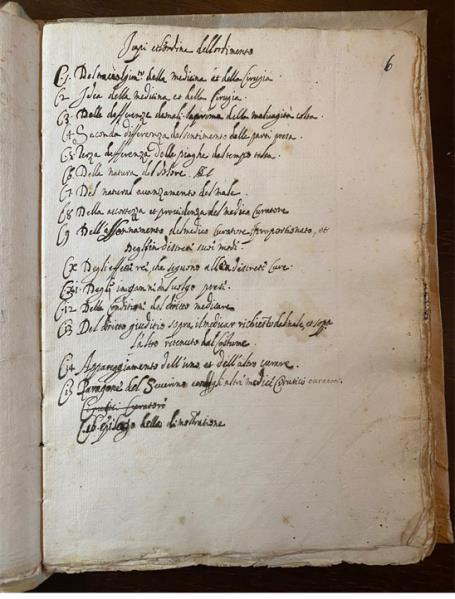 6
Capi et ordine dell'ordimento
C.1. Del della medicina et della Cirugia.
C2 Idea della medicina et della Cirugia.
C3. Delle differenze de mali. la prima della malvagità colta
C4 Seconda differenza dal sentimento delle parti presa.
C5 Terza differenza delle piaghe dal tempo tolta.
C6 Della natura del dolore.
C7 Del natural avanzamento del male.
C8 Della accortezza et providenza del medico Curatore
C9 Dell' del medico Curatore, sproportionato, et
degl' indiscreti suoi modi.
Cx. Degli effetti rei, che seguono all' indiscrete Cure.
C.11. Degl' inganni del volgo presi.
C.12. Delle conditioni del diritto medicare
C13 Del diritto giuditio sopra il medicar richiesto dal male, et sopra
l'altro ritenuto dal costume.
C.14. Appareggiamento dell'uno et dell'altro curare.
C.15 Paragone del Severino con gli altri medici Cirugici curatori.
Curatori
epilogo della dimostratione